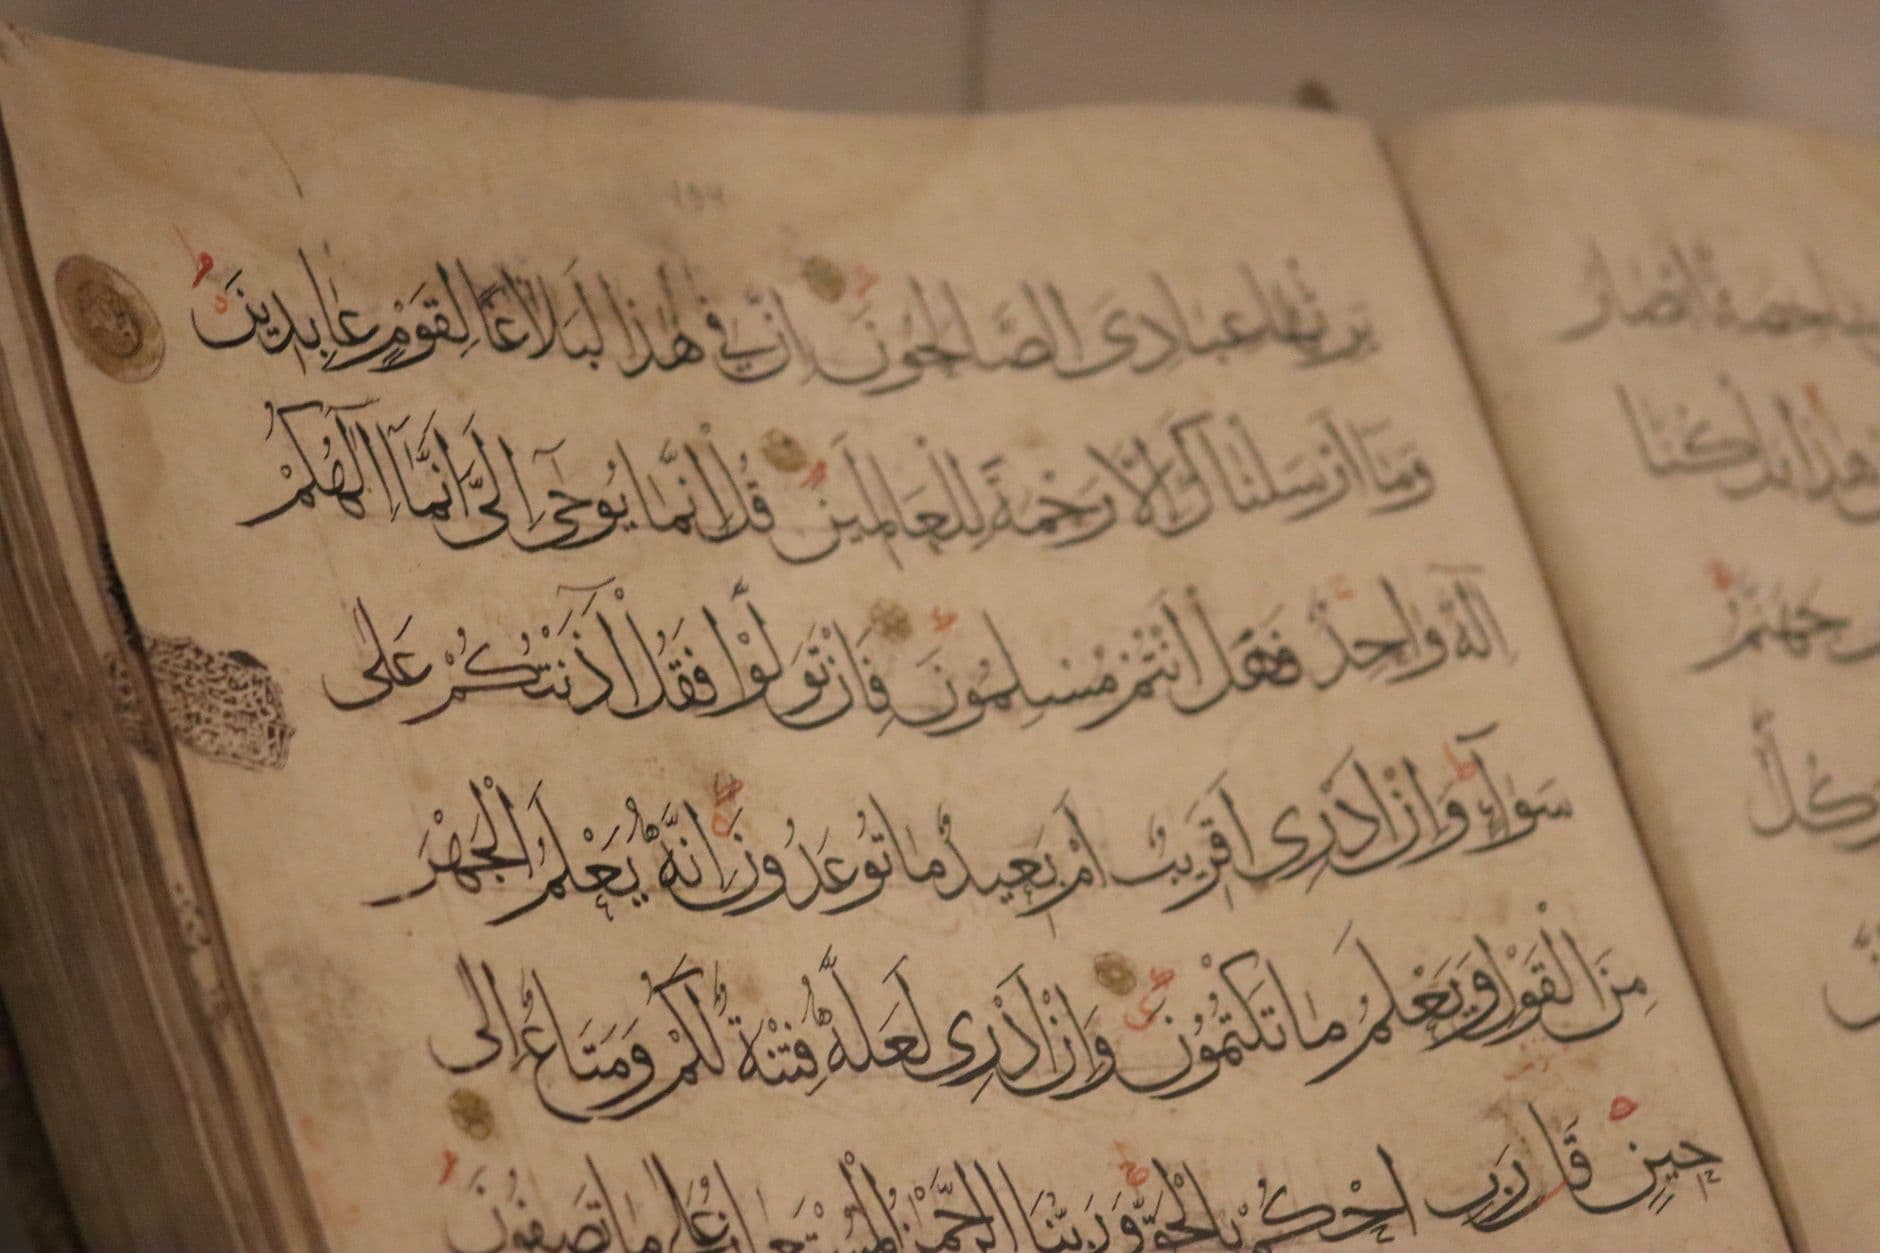 شاخصة أَبْصَارُ
هٰذَا بَلْ كُنَّا
جَهَنَّمَ
وَكُلٌّ
يَرِثُهَا عِبَادِىَ الصَّالِحُونَ إِنَّ فِي هٰذَا لَبَلَاغًا لِقَوْمٍ عَابِدِينَ
وَمَآ أَرْسَلْنَاكَ إِلَّا رَحْمَةً لِلْعَالَمِينَ قُلْ إِنَّمَا يُوحَىٰٓ إِلَىَّ أَنَّمَآ إِلٰهُكُمْ
إِلٰهٌ وَاحِدٌ فَهَلْ أَنْتُمْ مُسْلِمُونَ فَإِنْ تَوَلَّوْا فَقُلْ آذَنْتُكُمْ عَلَىٰ
سَوَآءٍ وَإِنْ أَدْرِى أَقَرِيبٌ أَمْ بَعِيدٌ مَا تُوعَدُونَ إِنَّهُ يَعْلَمُ الْجَهْرَ
مِنَ الْقَوْلِ وَيَعْلَمُ مَا تَكْتُمُونَ وَإِنْ أَدْرِى لَعَلَّهُ فِتْنَةٌ لَكُمْ وَمَتَاعٌ إِلَىٰ
حِينٍ قَالَ رَبِّ احْكُمْ بِالْحَقِّ وَرَبُّنَا الرَّحْمٰنُ الْمُسْتَعَانُ عَلَىٰ مَا تَصِفُونَ